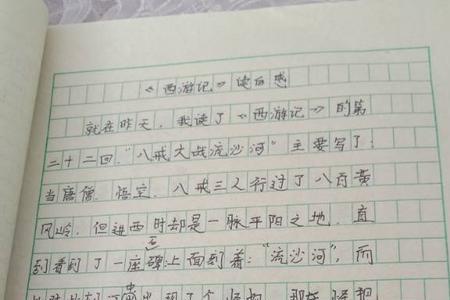 《西游记》读后感
就在昨天，我读了《西游记》的第
二十二回，“八戒大战流沙河”主要写了：
当唐僧、悟空、八戒三人行过了八百黄
风岭，但进西时却是一脉平阳之地，直
到看到了一座石碑上面刻着：“流沙河”，而